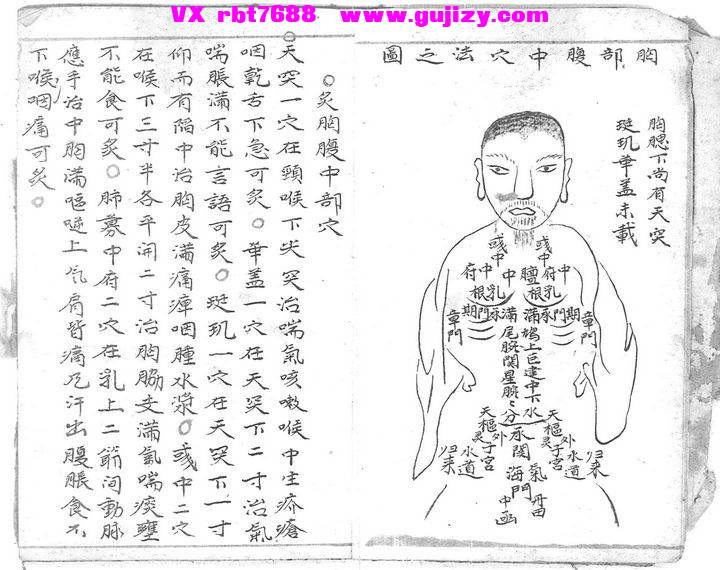 VX rbt7688 www.gujizy.com
胸部腹中穴法之圖
胸腮下尚有天突
璇玑華盖未載
彧中 彧中
中府 中膻 中府
乳根 乳根
期門 承滿 承滿 期門
章門 章門
鳩尾
上脘
巨闕
建里
中脘
下脘
水分
天樞 天樞
外灵 外
子宮 子宮
水道 水道
归来 归来
氣海
丹田
関門
○灸胸腹中部穴
○天突一穴在頸喉下尖突治喘氣咳嗽喉中生疥瘡
咽乾舌下急可灸○華盖一穴在天突下二寸治氣
喘脹滿不能言語可灸○璇玑一穴在天突下一寸
仰而有陥中治胸皮滿痛痺咽腫水漿○彧中二穴
在喉下三寸半各平開二寸治胸脇支滿氣喘痰壅
不能食可灸○肺募中府二穴在乳上二筋间動脉
應手治中胸滿嘔噦上气肩背痛及汗出腹脹食不
下喉咽痛可灸○